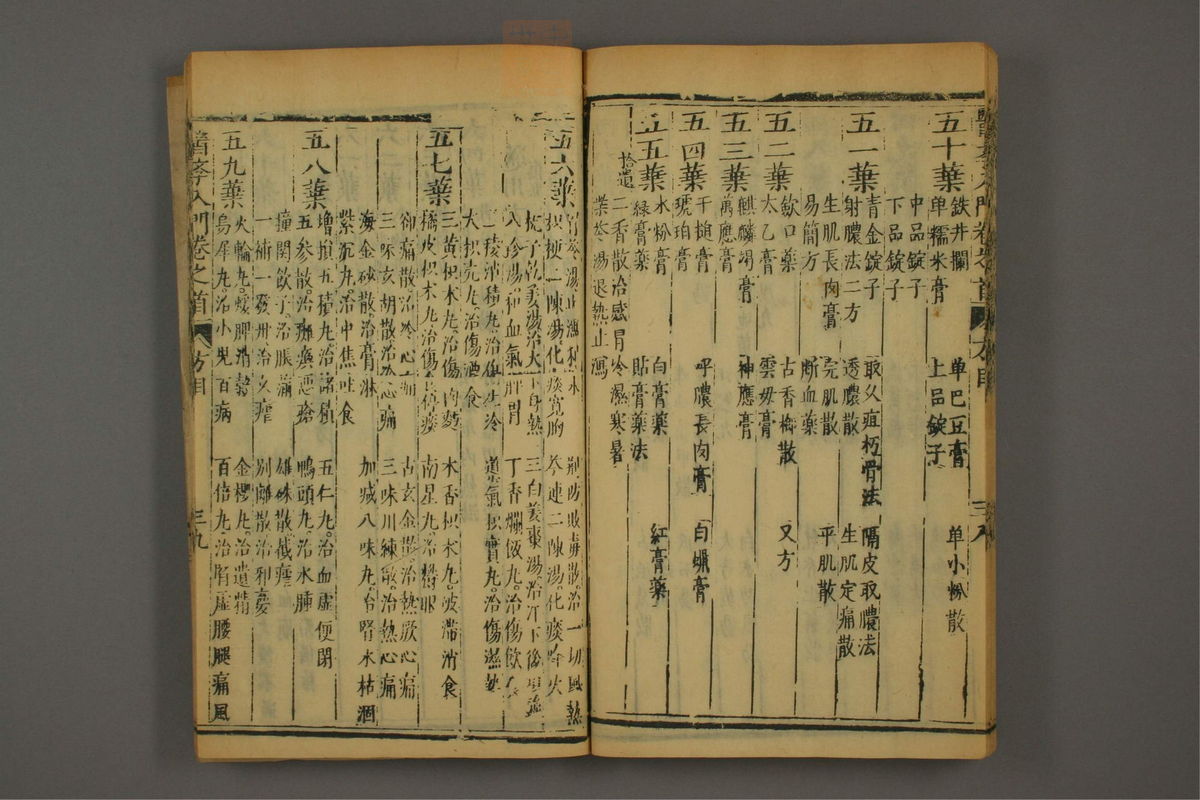 醫學入門卷之首 方目 三八
五十葉 鉄井欄 单巴豆膏 单小粉散
单糯米膏 上品錠子
中品錠子
下品錠子
五一葉 青金錠子 取久疽朽骨法 隔皮取膿法
射膿法二方 透膿散 生肌定痛散
生肌長肉膏 完肌散 平肌散
易簡方 断血藥
五二葉 歛口藥 古香梅散 又方
太乙膏 雲母膏
五三葉 麒麟竭膏 神應膏
萬應膏
五四葉 千搥膏 呼膿長肉膏 白蠟膏
琥珀膏
五五葉 水粉膏 白膏藥 紅膏藥
緑膏藥 貼膏藥法
拾遺 二香散治感冒冷濕寒暑
柴苓湯退熱止瀉
五六葉 竹苓湯止瀉利水 荆防敗毒散治一切風熱
枳梗二陳湯化痰寛胸 芩連二陳湯化痰降火
梔子乾姜湯治大下身熱 三白姜棗湯治汗下後
入 參湯和血氣肝胃 丁香爛飯丸治傷飲食
三稜消積丸治傷生冷 導氣枳實丸治傷濕熱
大枳壳丸治傷酒食
五七葉 三黄枳术丸治傷肉麪 木香枳术丸破滯消食
橘皮枳术丸治傷 痰 南星丸治
卻痛散治冷心痛 古玄金散治熱厥心痛
三味玄胡散治心痛 三味川楝散治熱心痛
海金砂散治膏淋 加减八味丸治腎水枯涸
紫沉丸治中焦吐食
五八葉 增損五積丸治諸積 五仁丸治血虚便閉
五參散治癩瘋惡瘡 鴨頭丸治水腫
撞関飲子治脹滿 雄硃散截瘧
一補一發丹治久瘧 別離散治邪夢
五九葉 火輪丸煖脾消穀 金櫻丸治遺精
烏犀丸治小兒百病 百倍丸治腎虚腰腿痛風
醫學入門卷之首 方目 三九